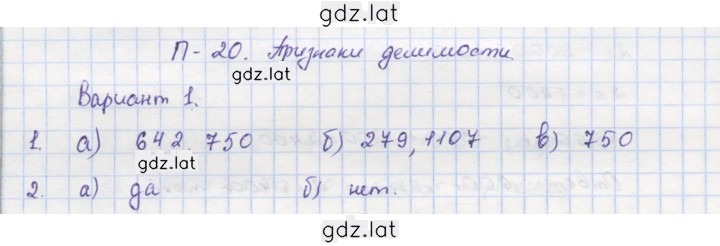 gdz.lat
П-20. Признаки делимости.
gdz.lat
Вариант 1.
gdz.lat
1. а) 642. 750 б) 279, 1107 в) 750
gdz.lat
2. а) да б) нет.
gdz.lat